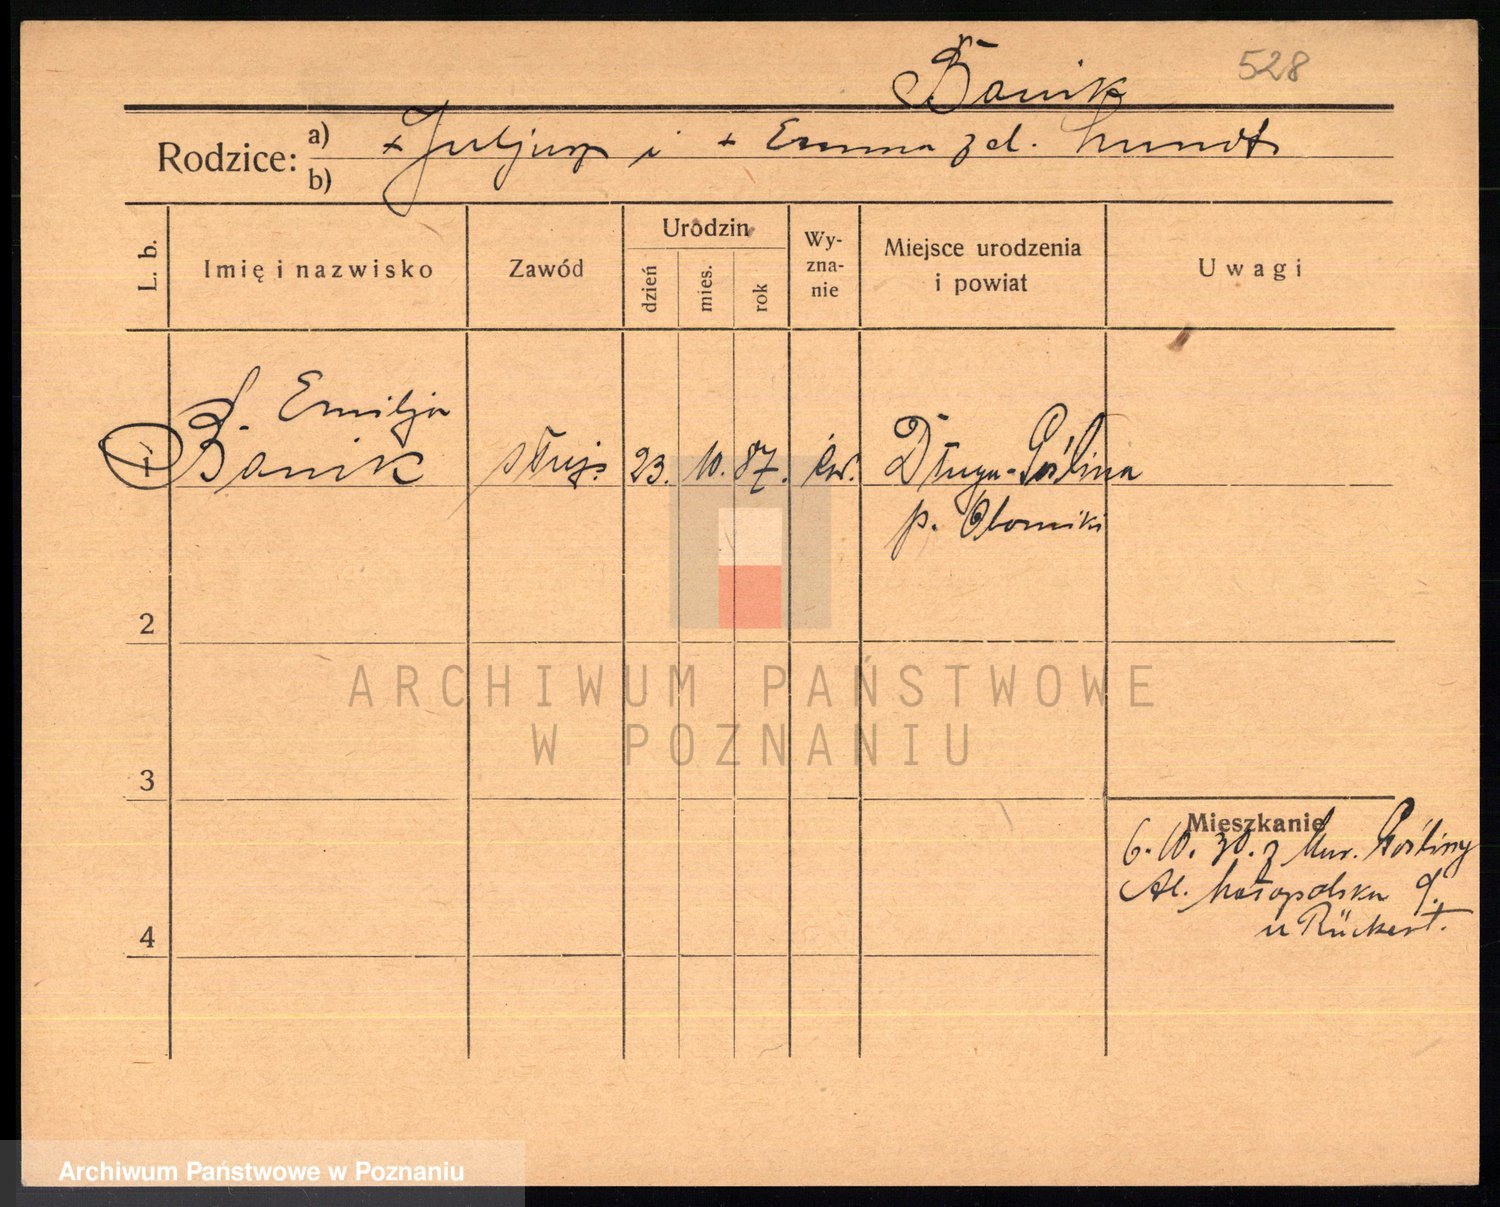 Banik 528
Rodzice: a) + Juljusz i + Emma z d. Hundt
b)
L. b.
Imię i nazwisko
Zawód
Urodzin
dzień
mies.
rok
Wy-
zna-
nie
Miejsce urodzenia
i powiat
Uwagi
Emilja
1 Banik służ. 23. 10. 87. ew. Długa-Goślina
p. Oborniki
2
ARCHIWUM PAŃSTWOWE
W POZNANIU
3
Mieszkanie
6. 10. 30. z Mur. Gośliny
Al. Małopolska 9.
u Rückert.
4
Archiwum Państwowe w Poznaniu